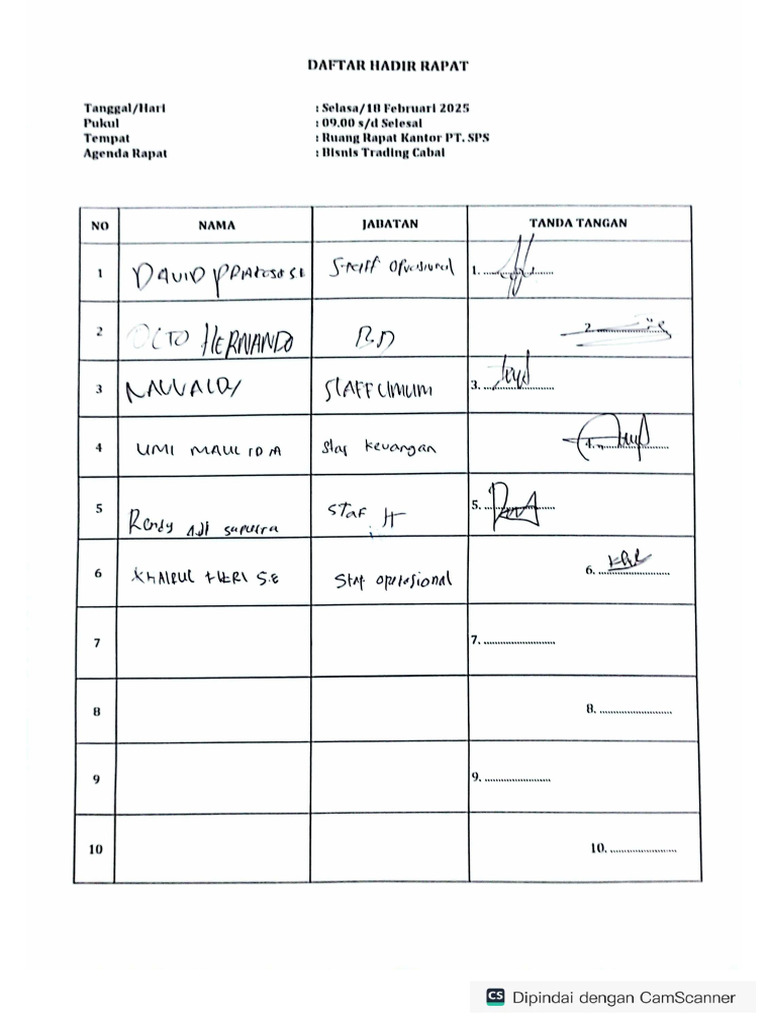 DAFTAR HADIR RAPAT
Tanggal/Hari : Selasa/18 Februari 2025
Pukul : 09.00 s/d Selesai
Tempat : Ruang Rapat Kantor PT. SPS
Agenda Rapat : Bisnis Trading Cabai
NO NAMA JABATAN TANDA TANGAN
1 DAVID S.E Staff Operasional 1.
2 OCTO HERNANDO B.D 2.
3 STAFF UMUM 3.
4 UMI MAULIDA Staf Keuangan 4.
5 Rendy Adi Saputra STAF IT 5.
6 KHAIRUL HERI S.E Staf operasional 6.
7 7.
8 8.
9 9.
10 10.
CS Dipindai dengan CamScanner